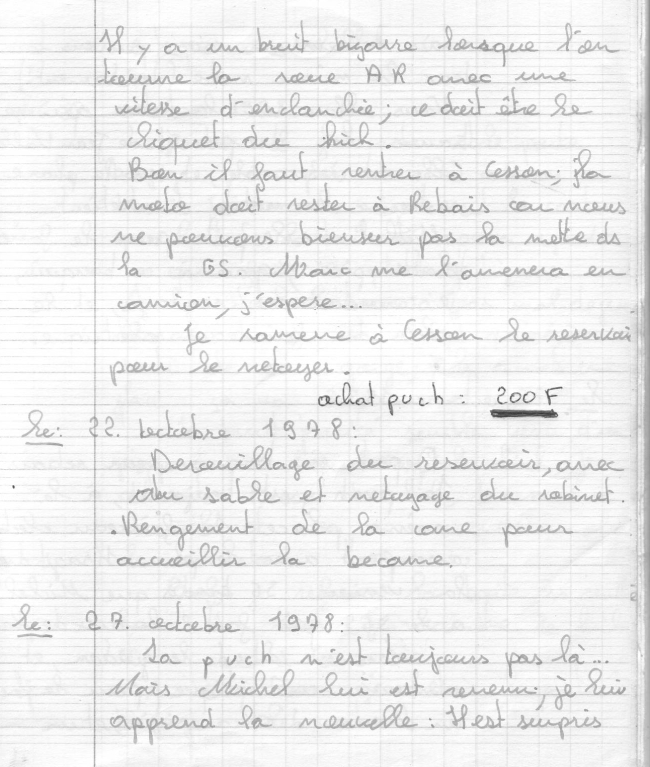 Il y a un bruit bizarre lorsque l'on
tourne la roue AR avec une
vitesse d'enclanchée; ce doit être le
cliquet du kick.
Bon il faut rentrer à Cesson; la
moto doit rester à Rebais car nous
ne pouvons biensur pas la mettre ds
la GS. Marc me l'amenera en
camion, j'espere...
Je ramene à Cesson le reservoir
pour le netoyer.
achat puch : 200 F
le: 22. octobre 1978:
Derouillage du reservoir, avec
du sable et netoyage du robinet.
. Rengement de la cave pour
accueillir la becane.
le: 27. octobre 1978:
La puch n'est toujours pas là...
Mais Michel lui est revenu; je lui
apprend la nouvelle : Il est surpris